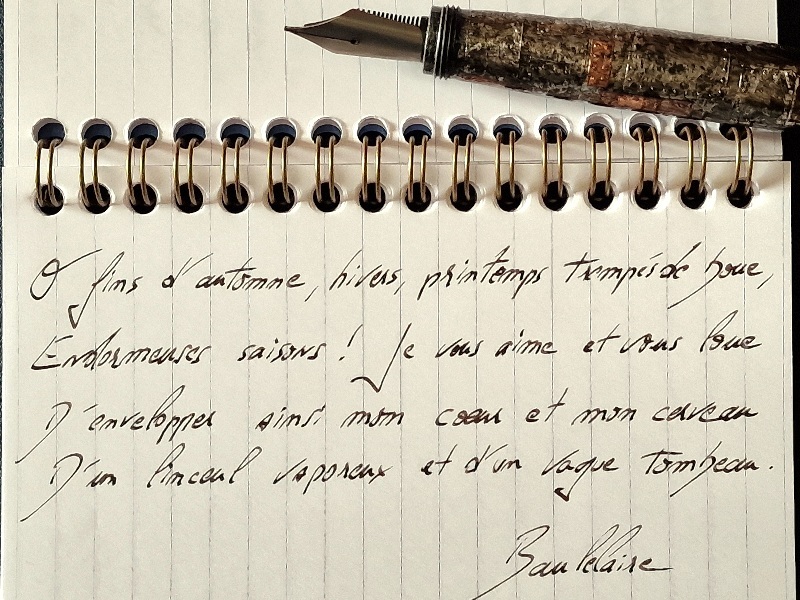 Ô fins d'automne, hivers, printemps trempés de boue,
Endormeuses saisons ! Je vous aime et vous loue
D'envelopper ainsi mon coeur et mon cerveau
D'un linceul vaporeux et d'un vague tombeau.
Baudelaire